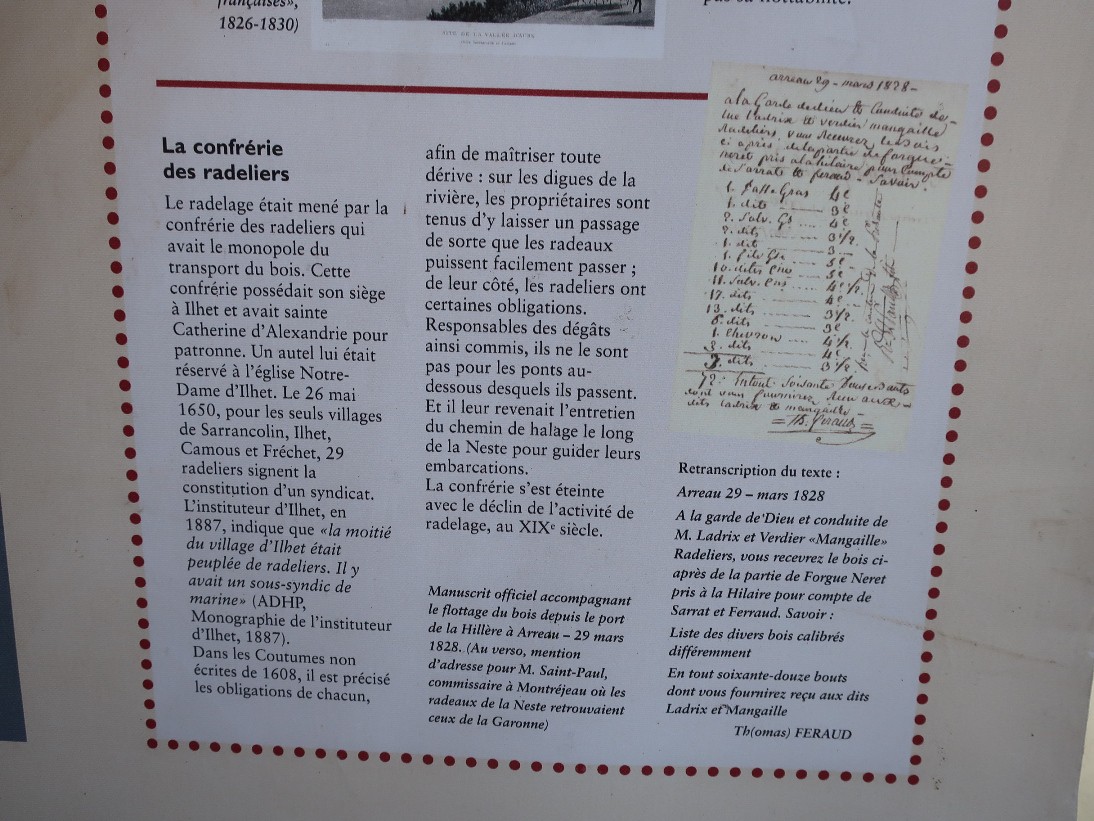 françaises»,
1826-1830)
SITE DE LA VALLÉE D'AURE
pas sa flottabilité.
La confrérie
des radeliers
Le radelage était mené par la
confrérie des radeliers qui
avait le monopole du
transport du bois. Cette
confrérie possédait son siège
à Ilhet et avait sainte
Catherine d'Alexandrie pour
patronne. Un autel lui était
réservé à l'église Notre-
Dame d'Ilhet. Le 26 mai
1650, pour les seuls villages
de Sarrancolin, Ilhet,
Camous et Fréchet, 29
radeliers signent la
constitution d'un syndicat.
L'instituteur d'Ilhet, en
1887, indique que «la moitié
du village d'Ilhet était
peuplée de radeliers. Il y
avait un sous-syndic de
marine» (ADHP,
Monographie de l'instituteur
d'Ilhet, 1887).
Dans les Coutumes non
écrites de 1608, il est précisé
les obligations de chacun,
afin de maîtriser toute
dérive : sur les digues de la
rivière, les propriétaires sont
tenus d'y laisser un passage
de sorte que les radeaux
puissent facilement passer ;
de leur côté, les radeliers ont
certaines obligations.
Responsables des dégâts
ainsi commis, ils ne le sont
pas pour les ponts au-
dessous desquels ils passent.
Et il leur revenait l'entretien
du chemin de halage le long
de la Neste pour guider leurs
embarcations.
La confrérie s'est éteinte
avec le déclin de l'activité de
radelage, au XIXe siècle.
Manuscrit officiel accompagnant
le flottage du bois depuis le port
de la Hillère à Arreau – 29 mars
1828. (Au verso, mention
d'adresse pour M. Saint-Paul,
commissaire à Montréjeau où les
radeaux de la Neste retrouvaient
ceux de la Garonne)
arreau 29 - mars 1828 -
a la Garde de dieu & Conduite de
ladrix & verdier mangaille
Radeliers, vous recevrez le bois
ci après de la partie de forgue
neret pris a la hilaire pour Compte
de Sarrat & feraud. Savoir
4e
3e
4e
3 1/2
3
3e
3e
17. dits 4e
13. dits 3 1/2
6. dits 3e
1. Chevron 4 1/2
2. dits 4e
3. dits 3 1/2
72. En tout soixante douze bouts
dont vous fournirez recu aux
dits ladrix & mangaille
Th. Feraud
Retranscription du texte :
Arreau 29 – mars 1828
A la garde de Dieu et conduite de
M. Ladrix et Verdier «Mangaille»
Radeliers, vous recevrez le bois ci-
après de la partie de Forgue Neret
pris à la Hilaire pour compte de
Sarrat et Ferraud. Savoir :
Liste des divers bois calibrés
différemment
En tout soixante-douze bouts
dont vous fournirez reçu aux dits
Ladrix et Mangaille
Th(omas) FERAUD